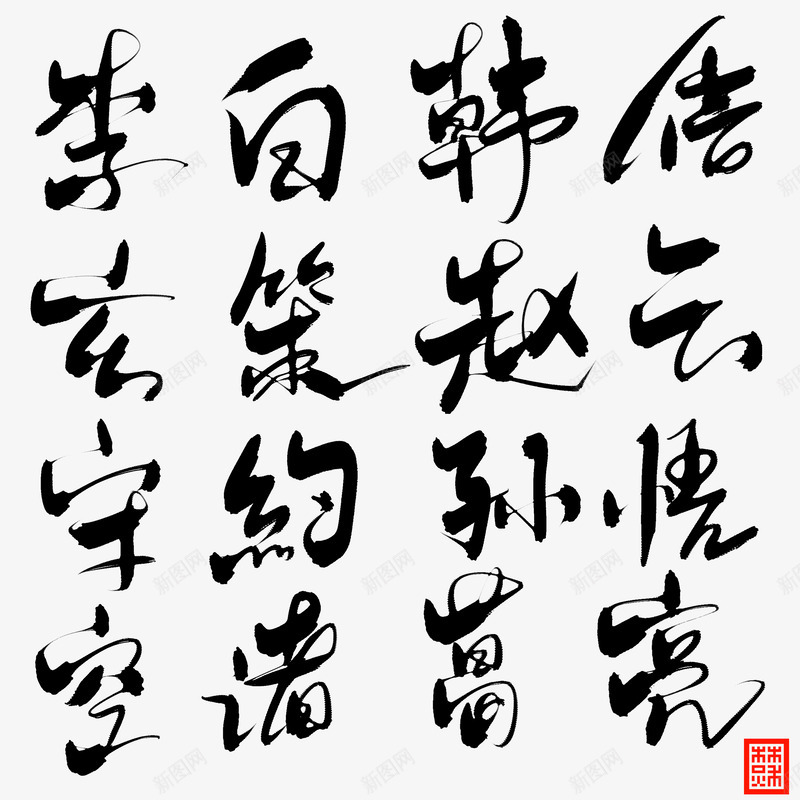 李白韩信
玄策赵云
守約孙悟
空诸葛亮